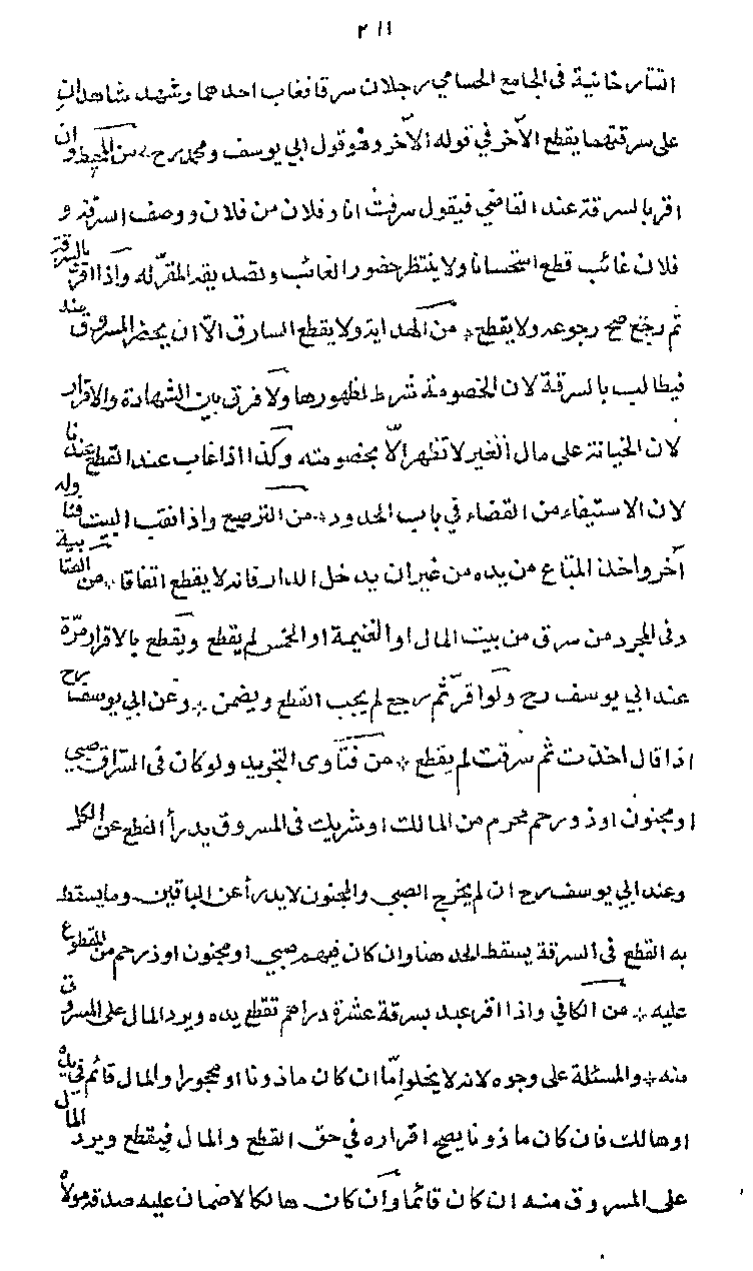 ٢١١
التتارخانية فى الجامع الحسامي رجلان سرقا فغاب احدهما وشهد شاهدان
على سرقتهما يقطع الآخر في قوله الآخر وهو قول ابي يوسف ومحمد رح من المحيط وان
اقر بالسرقة عند القاضي فيقول سرقت انا وفلان من فلان ووصف السرقة و
فلان غائب قطع استحسانا ولا ينتظر حضور الغائب وتصديقه المقر له واذا اقر بالسرقة
ثم رجع صح رجوعه ولا يقطع * من الهداية ولا يقطع السارق الا ان يحضر المسروق عنه
فيطالب بالسرقة لان الخصومة شرط لظهورها ولا فرق بين الشهادة والاقرار
لان الخيانة على مال الغير لا تظهر الا بخصومته وكذا اذا غاب عند القطع عندنا
لان الاستيفاء من القضاء في باب الحدود * من الترصيح واذا نقب البيت وله
آخر واخذ المتاع من يده من غير ان يدخل الدار فانه لا يقطع اتفاقا * من
دفى المجرد من سرق من بيت المال او الغنيمة او الخمس لم يقطع ويقطع بالاقرار مرّة
عند ابي يوسف رح ولو اقر ثم رجع لم يجب القطع ويضمن * وعن ابي يوسف رح
اذا قال اخذت ثم سرقت لم يقطع * من فتاوى التجريد ولو كان فى السراق صبي
او مجنون او ذو رحم محرم من المالك او شريك فى المسروق يدرأ القطع عن الكل
وعند ابي يوسف رح ان لم يخرج الصبي والمجنون لا يدرأ عن الباقين وما يسقط
به القطع فى السرقة يسقط الحد هنا وان كان فيهم صبي او مجنون او ذو رحم من المقطوع
عليه * من الكافي واذا اقر عبد بسرقة عشرة دراهم تقطع يده ويرد المال على المسروق
منه * والمسئلة على وجوه لانه لا يخلو اما ان كان ماذونا او محجورا والمال قائم في يده
او هالك فان كان ماذونا يصح اقراره في حق القطع والمال فيقطع ويرد المال
على المسروق منه ان كان قائما وان كان هالكا لا ضمان عليه صدقه مولاه